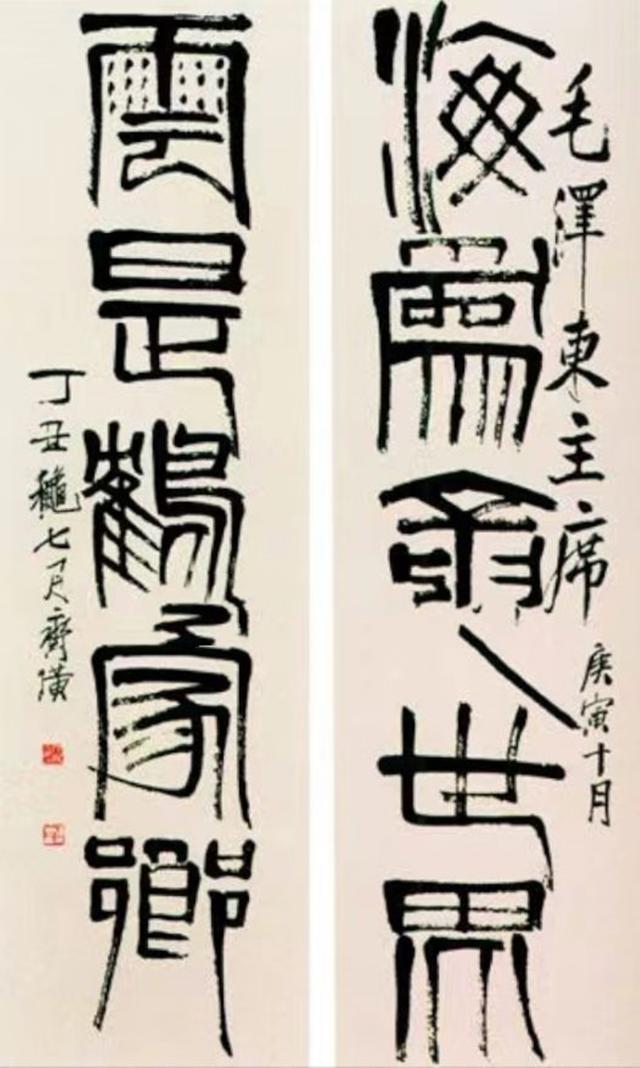 毛澤東主席
庚寅十月
海爲龍世界
雲是鶴家鄉
丁丑穐七月齊璜